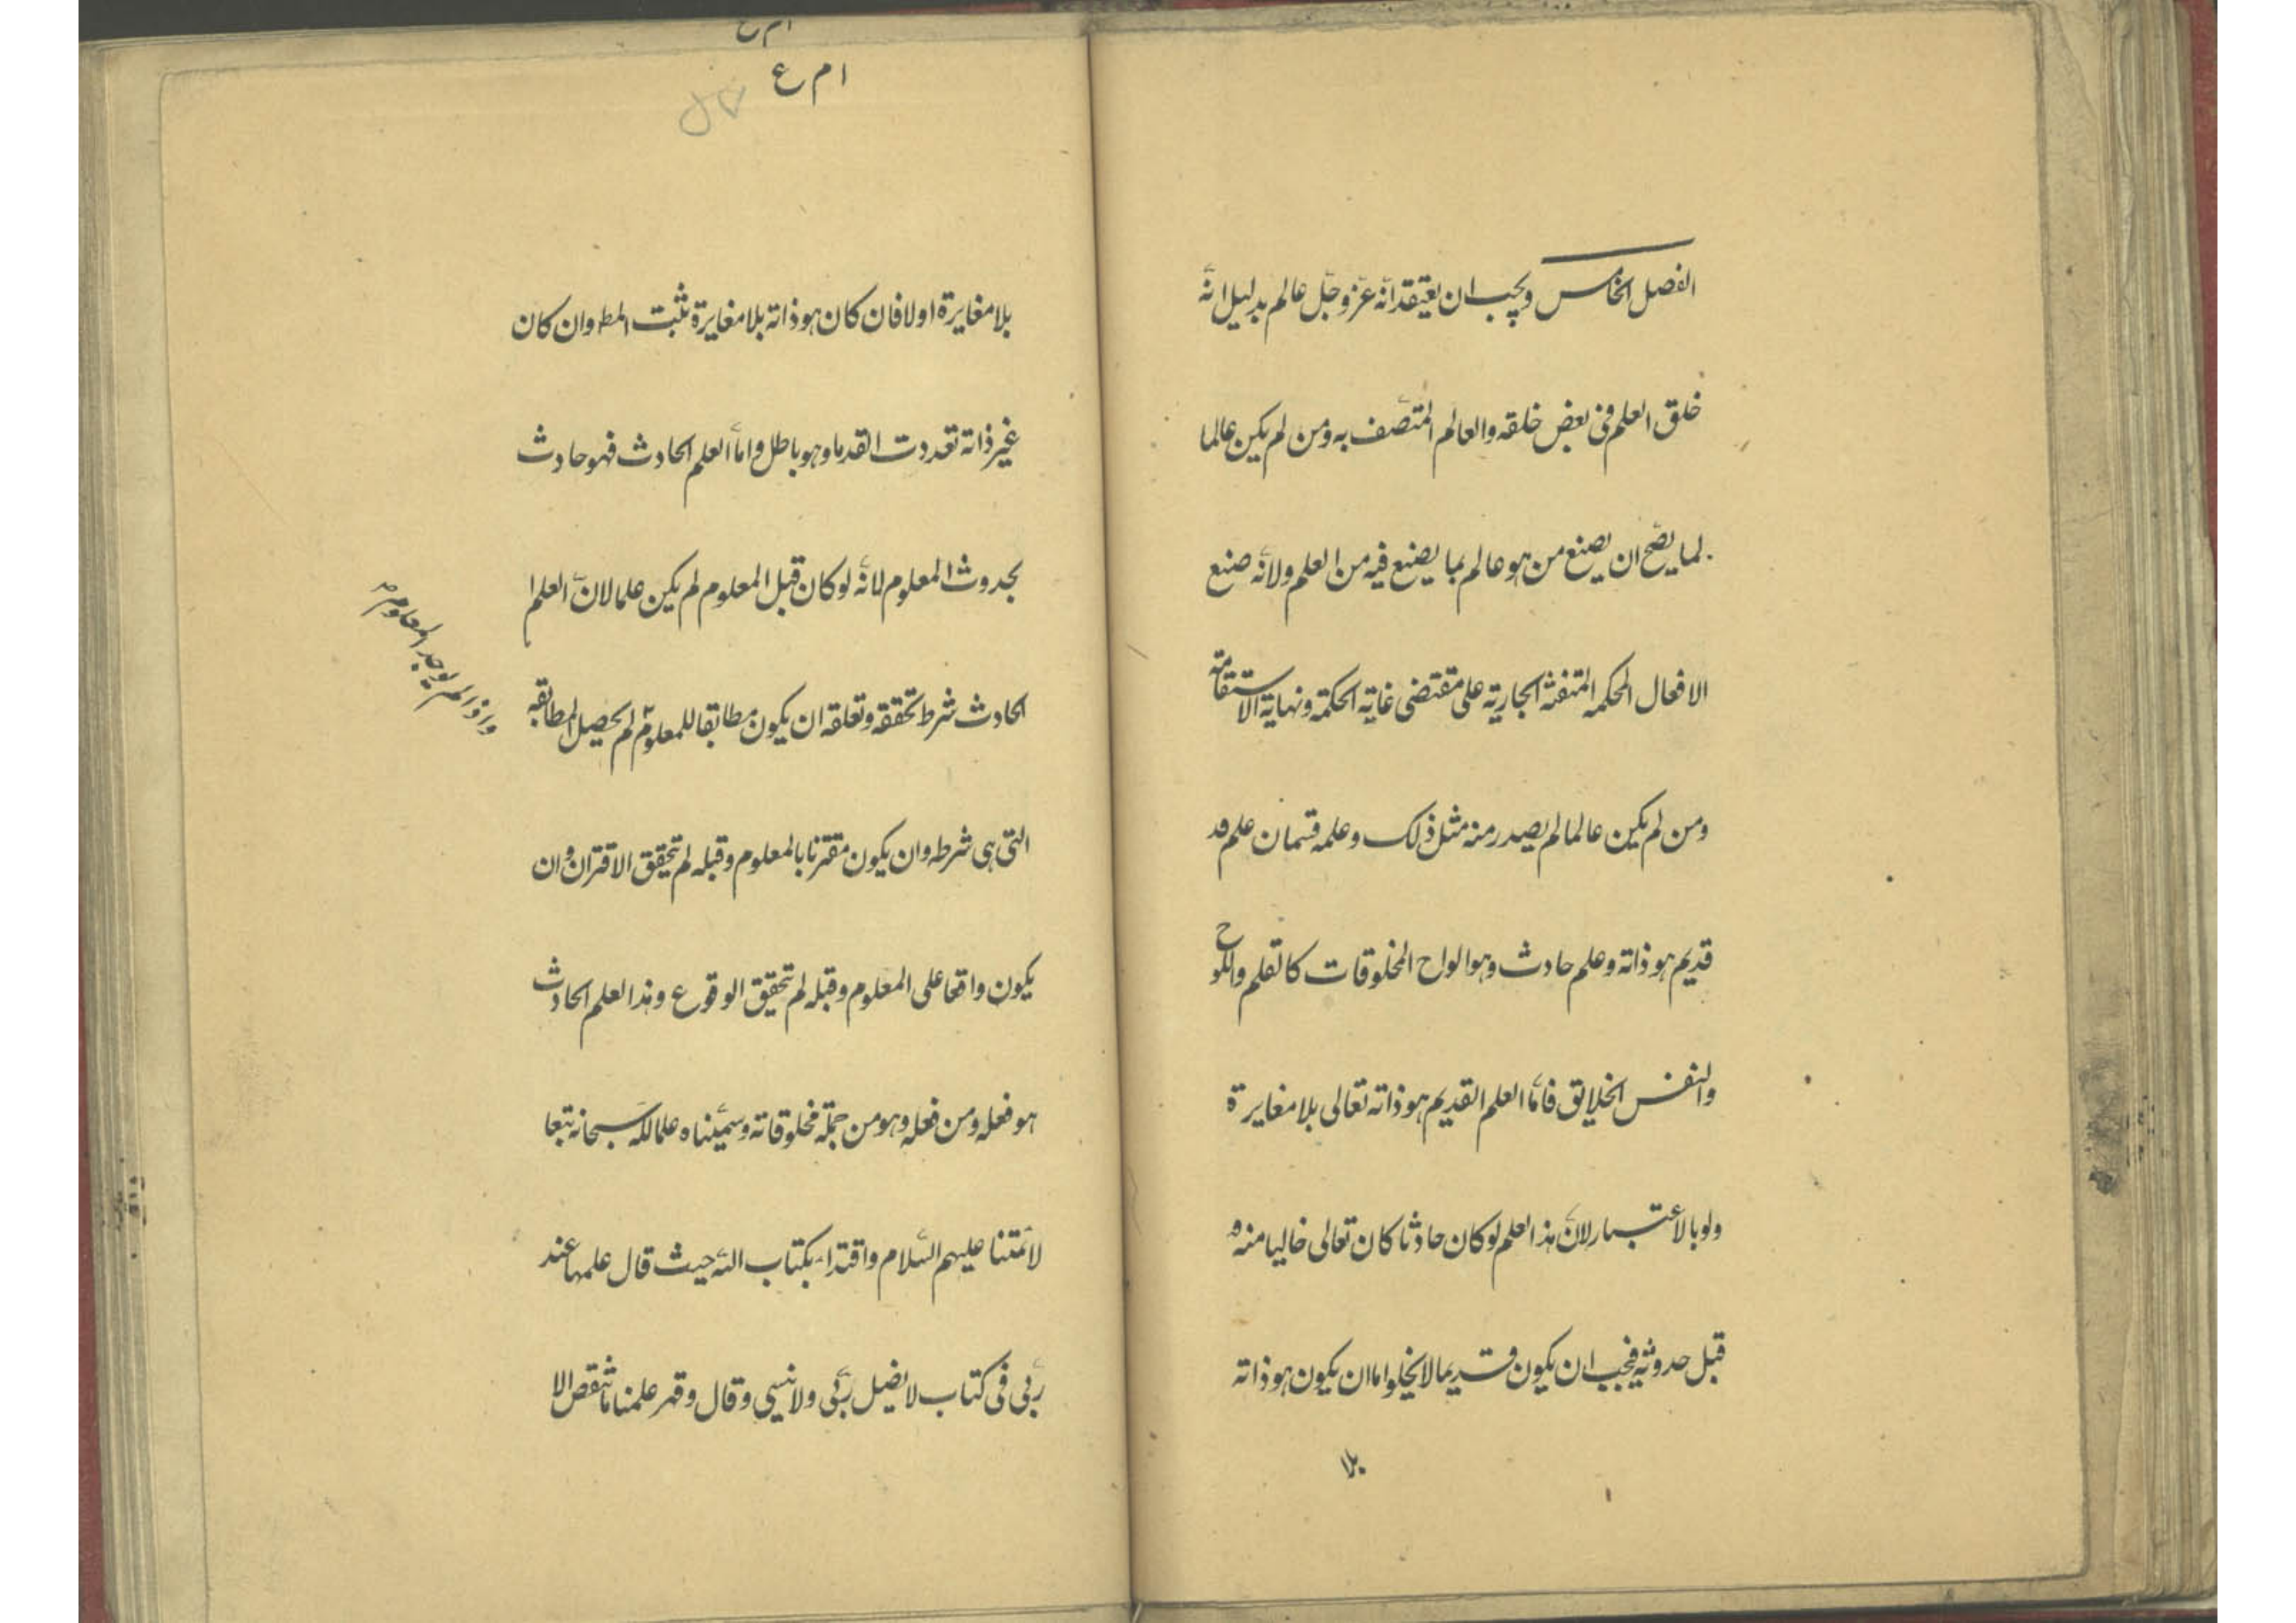 الفصل الخامس ويجب ان يعتقد انه عز وجل عالم بدليل انه
خلق العلم فى بعض خلقه والعالم المتصف به ومن لم يكن عالما
لما يصح ان يصنع من هو عالم بما يصنع فيه من العلم ولانه صنع
الافعال المحكمه المتقنة الجارية على مقتضى غاية الحكمة ونهاية الاستقامة
ومن لم يكن عالما لم يصدر منه مثل ذلك وعلمه قسمان علم
قديم هو ذاته وعلم حادث وهو الواح المخلوقات كالقلم واللوح
وانفس الخلايق فاما العلم القديم هو ذاته تعالى بلا مغايرة
ولو بالاعتبار لان هذا العلم لو كان حادثا كان تعالى خاليا منه
قبل حدوثه فيجب ان يكون قديما لا يخلوا اما ان يكون هو ذاته
بلا
ا م ع
بلا مغايرة اولا فان كان هو ذاته بلا مغايرة ثبت المط وان كان
غير ذاته تعددت القدما وهو باطل واما العلم الحادث فهو حادث
بحدوث المعلوم لانه لو كان قبل المعلوم لم يكن علما لان العلم ا
الحادث شرط تحققه وتعلقه ان يكون مطابقا للمعلوم لم يحصل المطابقه
واذا لم يوجد المعلوم
التى هى شرطه وان يكون مقترنا بالمعلوم وقبله لم يتحقق الاقتران وان
يكون واقعا على المعلوم وقبله لم يتحقق الوقوع وهذا العلم الحادث
هو فعله ومن فعله وهو من جملة مخلوقاته وسميناه علما لله سبحانه تبعا
لائمتنا عليهم السلام واقتداء بكتاب الله حيث قال علمها عند
ربى فى كتاب لا يضل ربى ولا ينسى وقال وقد علمنا ما تنقص الا